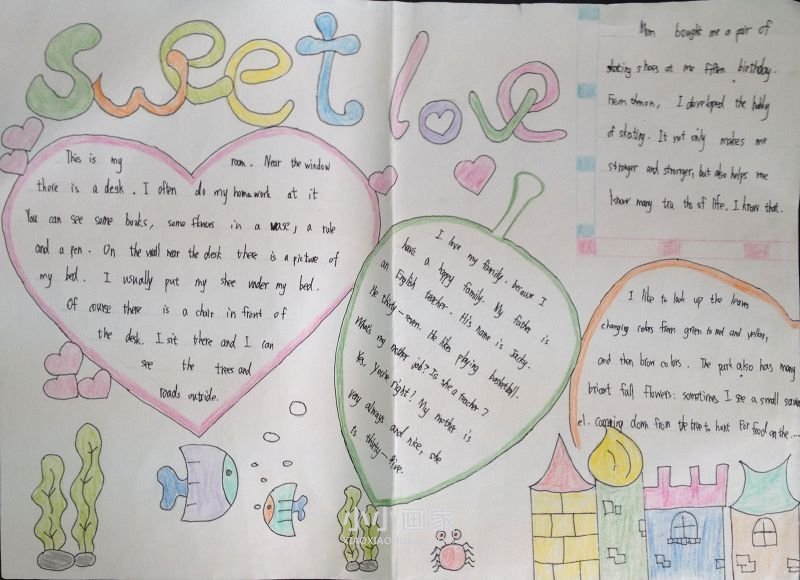 sweet love
This is my room. Near the window
there is a desk. I often do my homework at it
You can see some books, some flowers in a vase, a rule
and a pen. On the wall near the desk there is a picture of
my bed. I usually put my shee under my bed.
Of course there is a chair in front of
the desk. I sit there and I can
see the trees and
roads outside.
I love my family, because I
have a happy family. My father is
an English teacher. His name is Jacky.
He thirty-seven. He likes playing basketball.
What's my mother job? Is she a teacher?
Yes, you're right! My mother is
very always and nice, she
is thirty-five.
Mom bought me a pair of
skating shoes at me fiften birthday.
From thmon, I developed the hobby
of skating. It not only makes me
stronger and stronger, but also helps me
know many tru ths of life. I know that.
I like to look up the leaves
changing colors from green to red and yellow,
and then brow colors. The park also has many
briant fall flowers. sometimes I see a small
el. comming down from the tree to hunt for food on the....
小小画家
XIAOXIAOHUAJIA